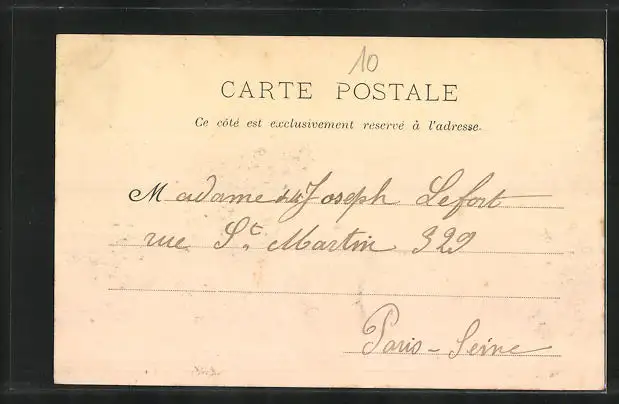 10
CARTE POSTALE
Ce côté est exclusivement reservé à l'adresse.
Madame Joseph Lefort
rue St. Martin 329
Paris - Seine